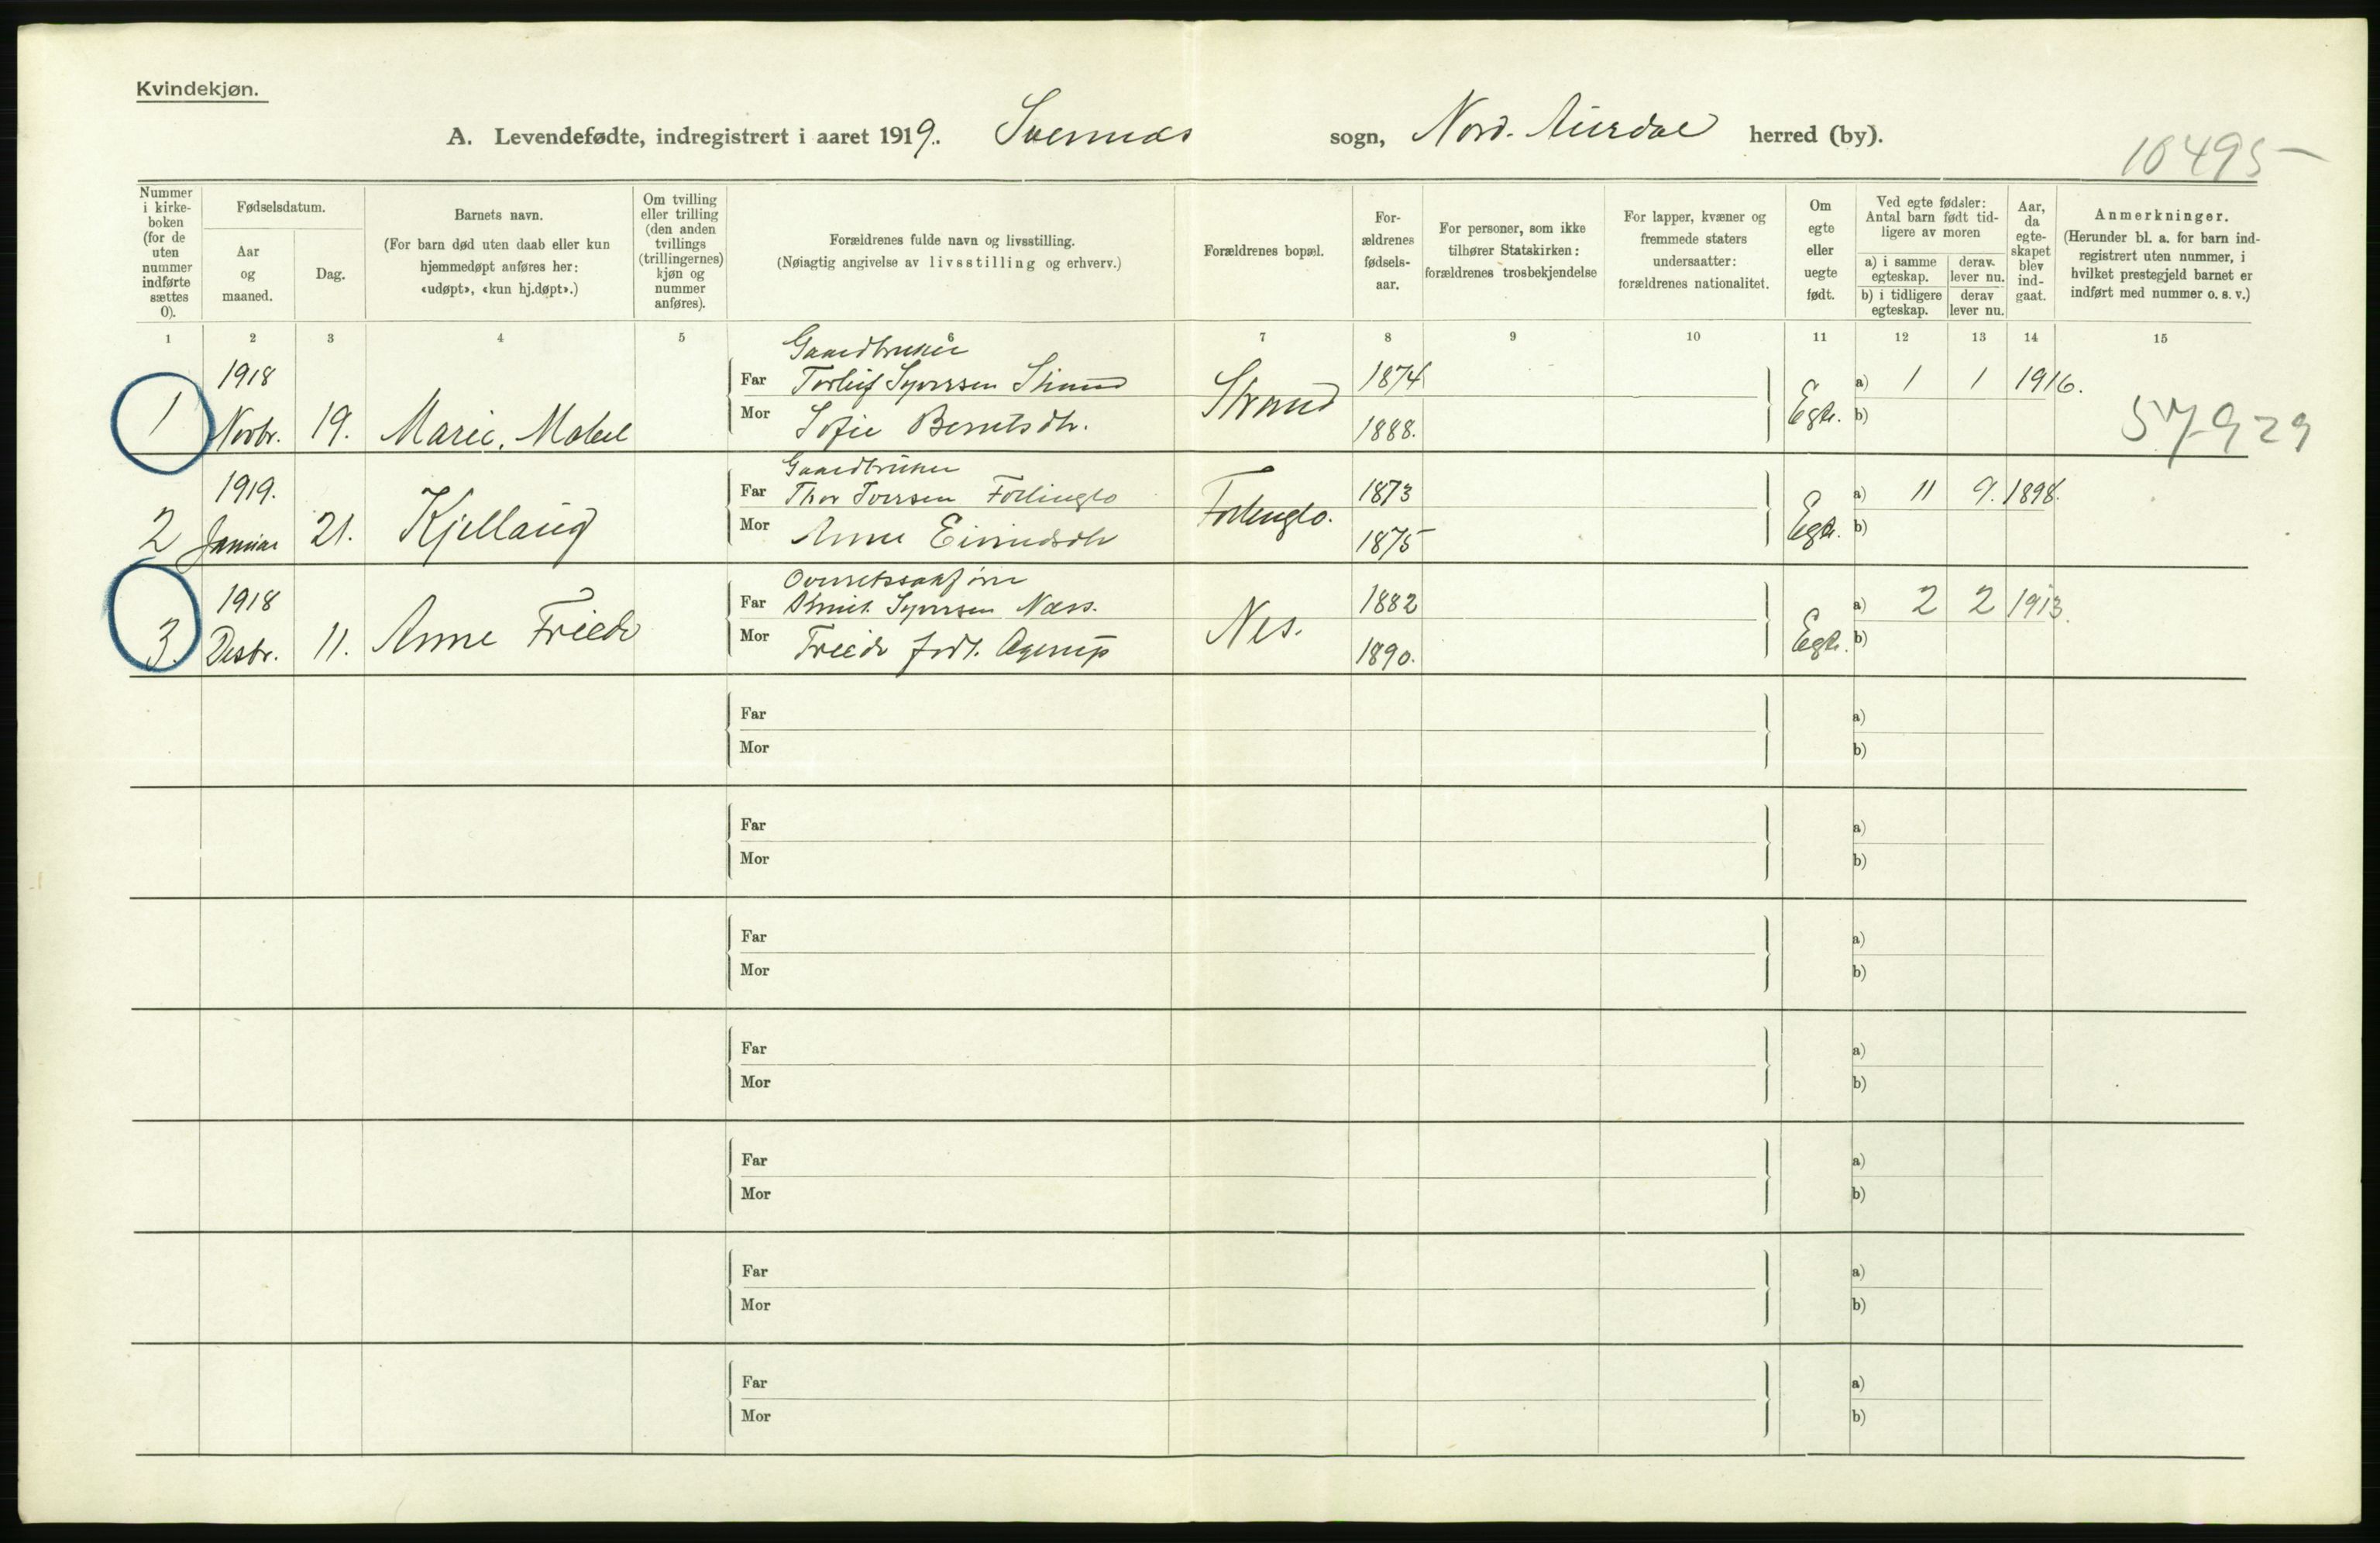 Kvindekjøn.
A. Levendefødte, indregistrert i aaret 1919. Svennes sogn, Nord-Aurdal herred (by).
10495
Nummer i kirke-boken (for de uten nummer indførte sættes 0).
Fødselsdatum.
Aar og maaned.
Dag.
Barnets navn.
(For barn død uten daab eller kun hjemmedøpt anføres her: «udøpt», «kun hj.døpt».)
Om tvilling eller trilling (den anden tvillings (trillingernes) kjøn og nummer anføres).
Forældrenes fulde navn og livsstilling.
(Nøiagtig angivelse av livsstilling og erhverv.)
Forældrenes bopæl.
For-ældrenes fødsels-aar.
For personer, som ikke tilhører Statskirken: forældrenes trosbekjendelse
For lapper, kvæner og fremmede staters undersaatter: forældrenes nationalitet.
Om egte eller uegte født.
Ved egte fødsler: Antal barn født tid-ligere av moren
a) i samme egteskap.
derav. lever nu.
b) i tidligere egteskap.
derav lever nu.
Aar, da egte-skapet blev ind-gaat.
Anmerkninger.
(Herunder bl. a. for barn ind-registrert uten nummer, i hvilket prestegjeld barnet er indført med nummer o. s. v.)
1 2 3 4 5 6 7 8 9 10 11 12 13 14 15
Gaardbruker
1918 Far Torleif Syversen Strand 1874 a) 1 1 1916.
1 Novbr. 19. Marie, Mabel Mor Sofie Berntsdtr. Strand 1888. Egte. b)
57929
Gaardbruker
1919. Far Thor Iversen 1873 a) 11 9. 1898.
2 Januar 21. Kjellaug Mor Anne Eivindsdtr 1875 Egte. b)
Overretssakfører
1918 Far Syversen Næss. 1882 a) 2 2 1913.
3. Desbr. 11. Anne Frieda Mor Frieda født Agerup Nes. 1890. Egte. b)
Far a)
Mor b)
Far a)
Mor b)
Far a)
Mor b)
Far a)
Mor b)
Far a)
Mor b)
Far a)
Mor b)
Far a)
Mor b)